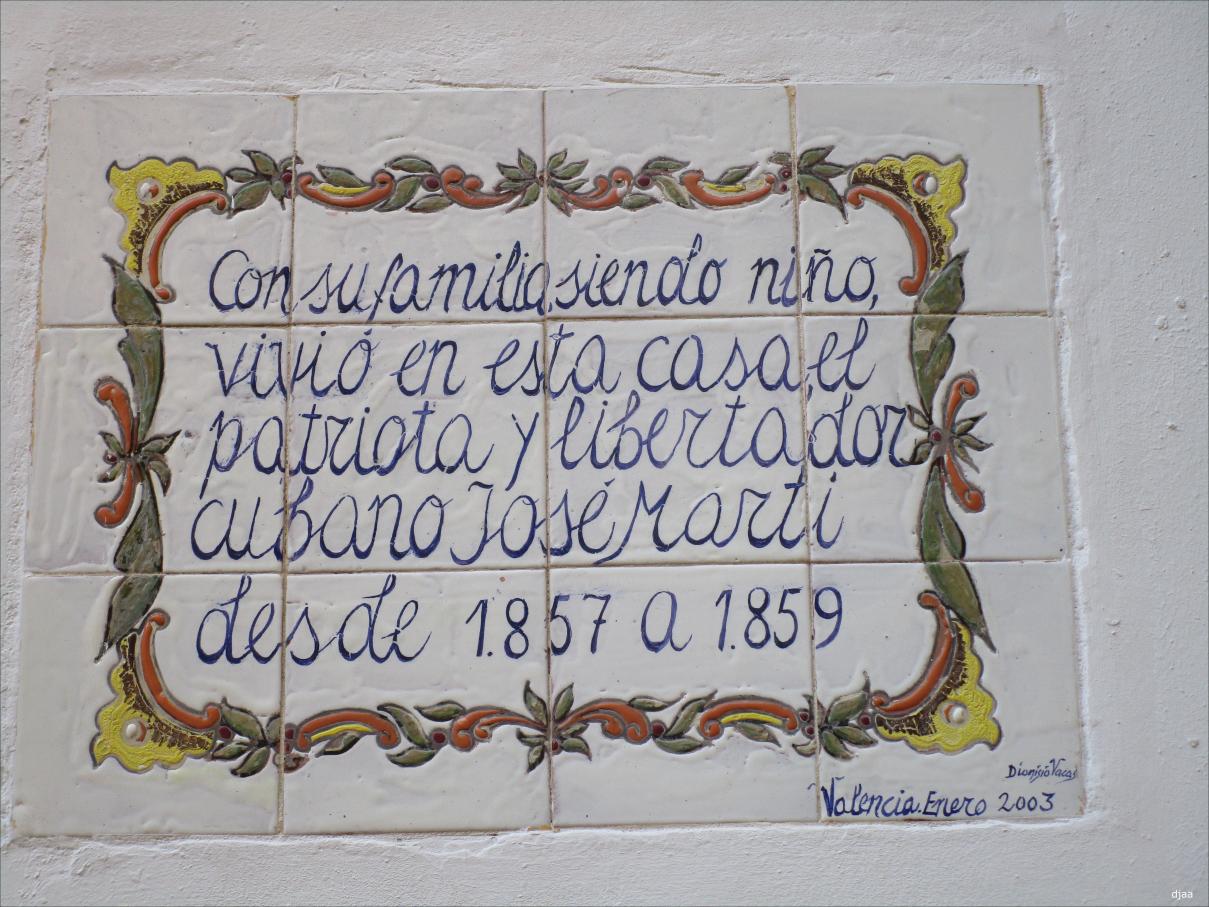 Con su familia siendo niño,
vivió en esta casa, el
patriota y libertador
cubano José Marti
desde 1.857 a 1.859
Dionisio Vacas
Valencia. Enero 2003
djaa